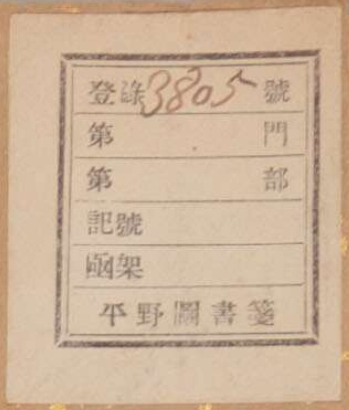 登錄3805號
第門
第部
記號
凾架
平野圖書箋